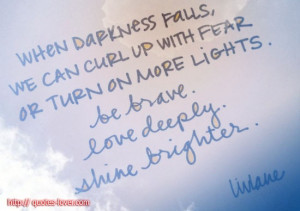 WHEN DARKNESS FALLS,
WE CAN CURL UP WITH FEAR
OR TURN ON MORE LIGHTS.
be brave.
love deeply.
shine brighter.
http:// quotes-lover.com/